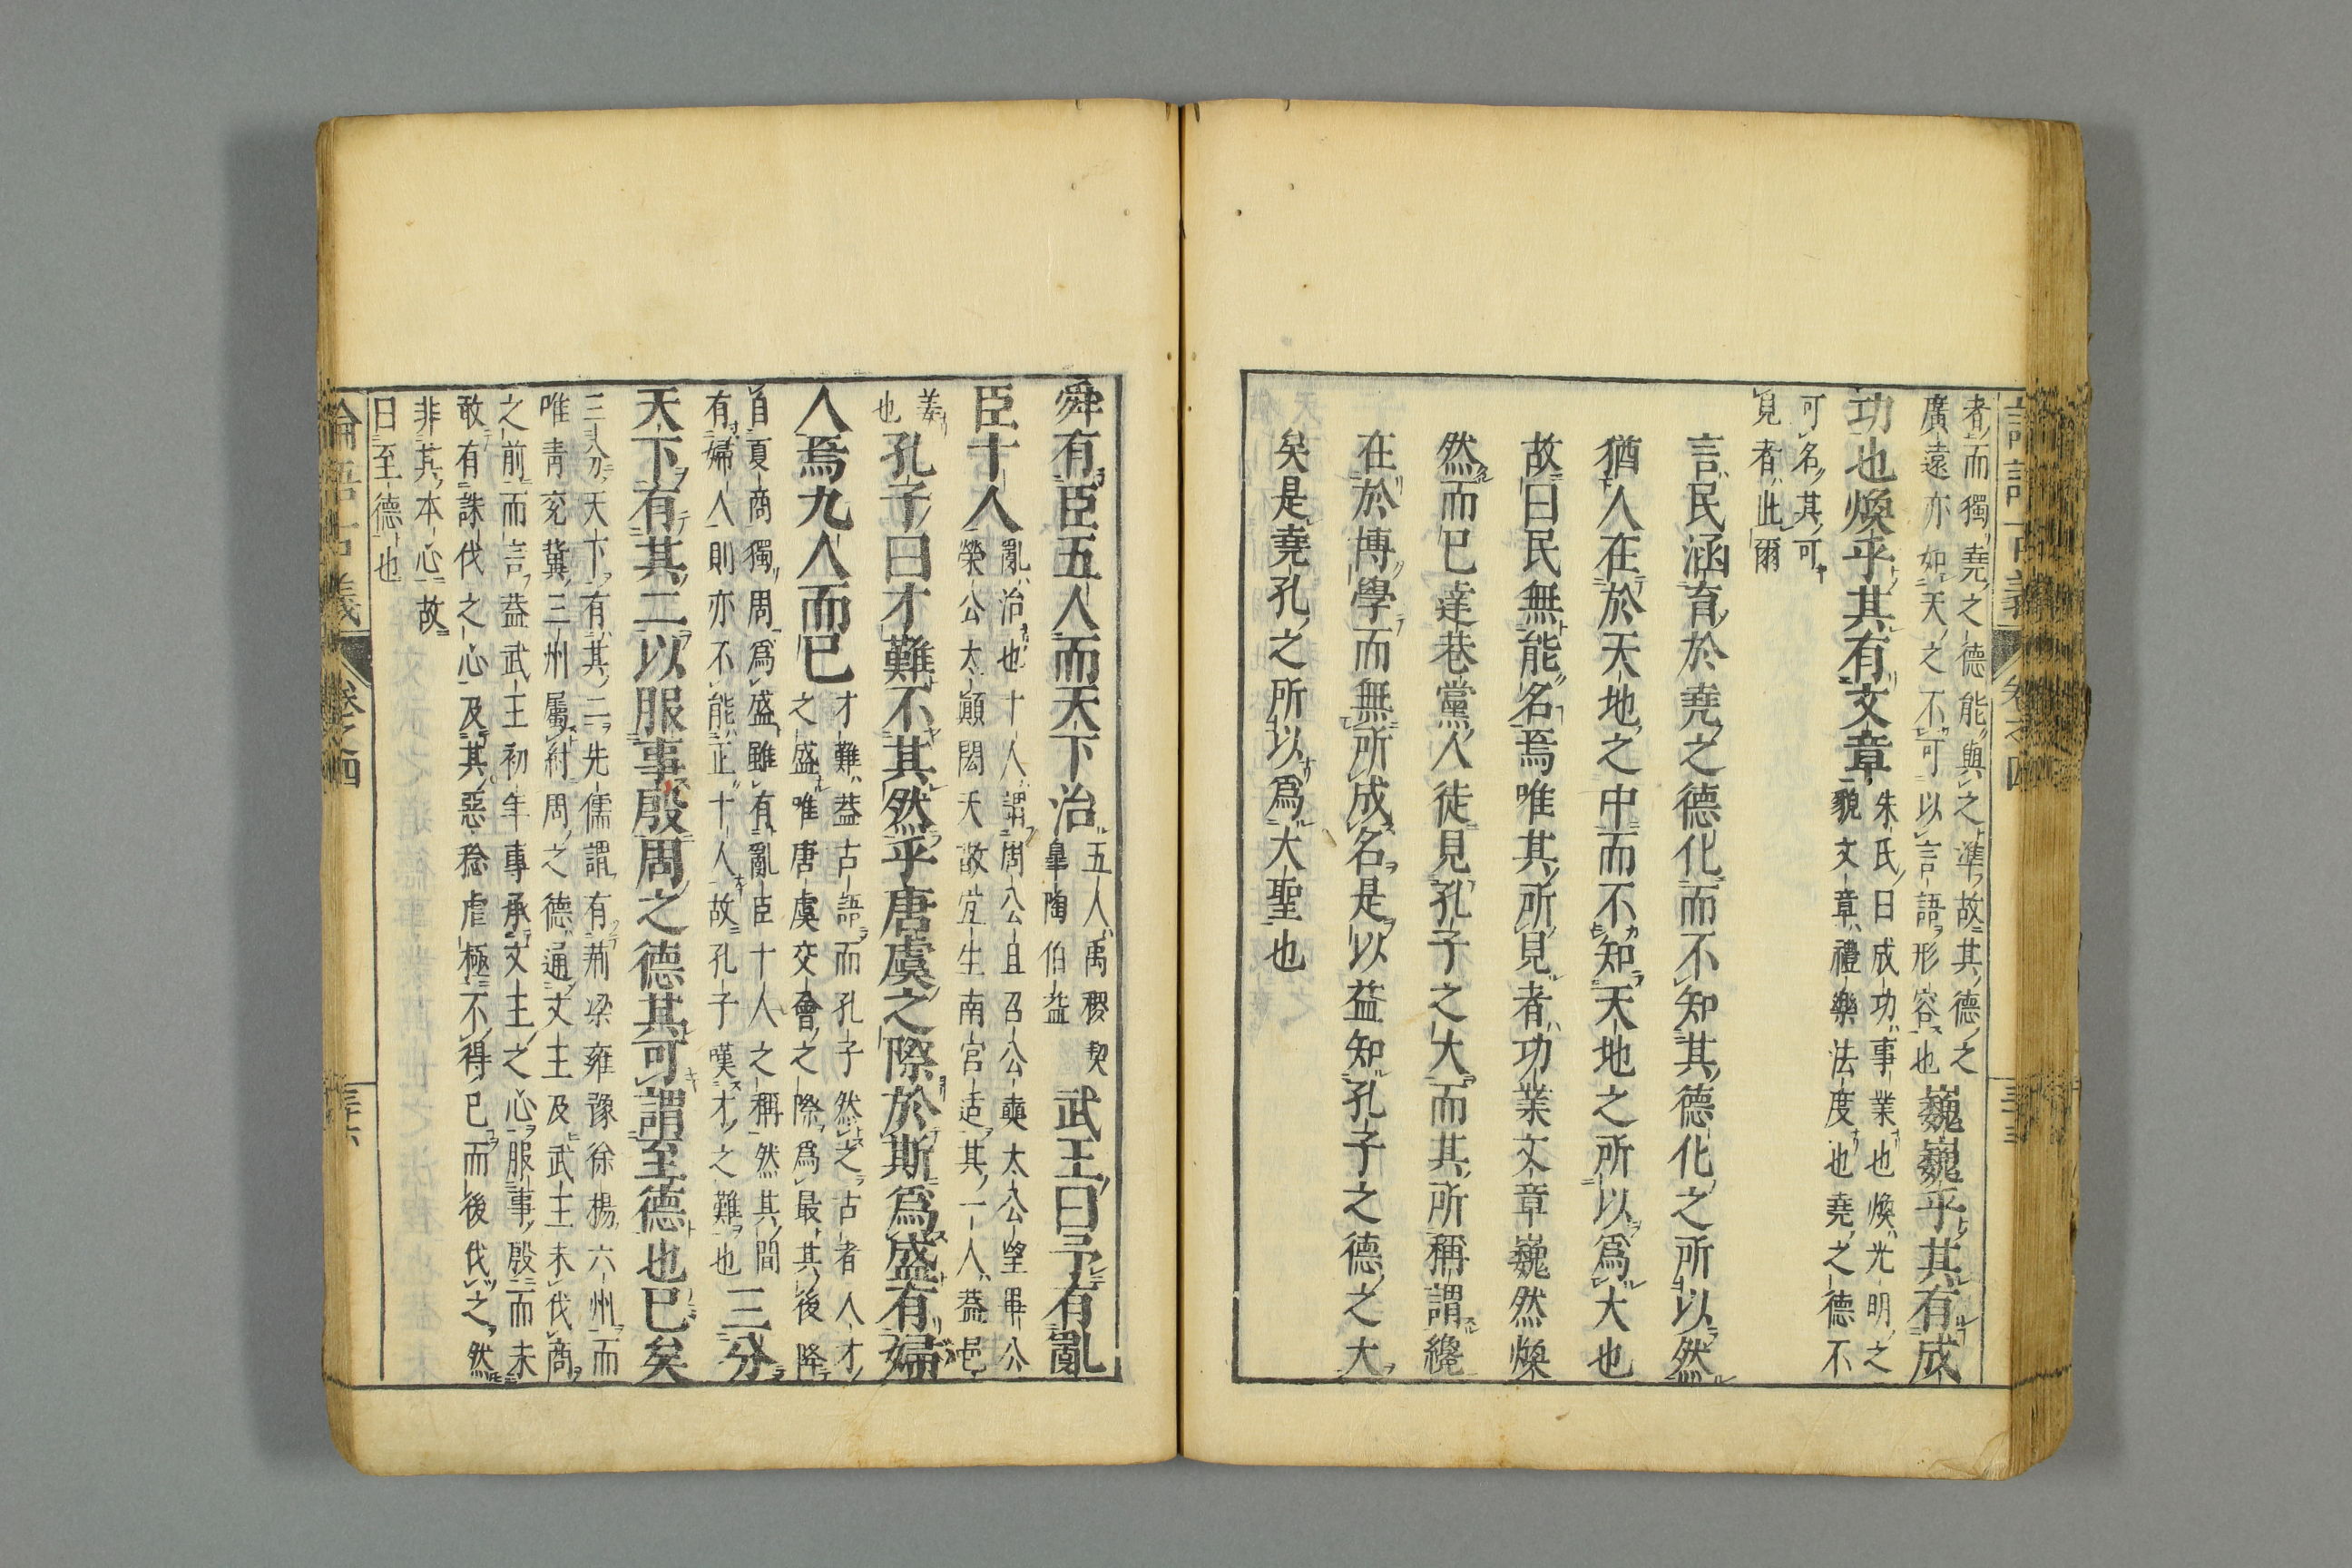 者而獨堯之德能與之準故其德之
廣遠亦如天之不可以言語形容也
巍巍乎其有成
功也煥乎其有文章
朱氏曰成功事業也煥光明之
貌文章禮樂法度也堯之德不
可名其可
見者此爾
言民涵育於堯之德化而不知其德化之所以然
猶人在於天地之中而不知天地之所以爲大也
故曰民無能名焉唯其所見者功業文章巍然煥
然而已達巷黨人徒見孔子之大而其所稱謂纔
在於博學而無所成名是以益知孔子之德之大
矣是堯孔之所以爲大聖也
舜有臣五人而天下治
五人禹稷契
皐陶伯益
武王曰予有亂
臣十人
亂治也十人謂周公旦召公奭太公望畢公
榮公太顚閎夭散宜生南宮适其一人蓋邑
姜
也
孔子曰才難不其然乎唐虞之際於斯爲盛有婦
人焉九人而已
才難蓋古語而孔子然之古者人才
之盛唯唐虞交會之際爲最其後降
自夏商獨周爲盛雖有亂臣十人之稱然其間
有婦人則亦不能正十人故孔子嘆才之難也
三分
天下有其二以服事殷周之德其可謂至德也已矣
三分天下有其二先儒謂有荊梁雍豫徐揚六州而
唯靑兗冀三州屬紂周之德通文王及武王未伐商
之前而言蓋武王初年事承文王之心服事殷而未
敢有誅伐之心及其惡稔虐極不得已而後伐之然
非其本心故
曰至德也
論語古義
卷之四